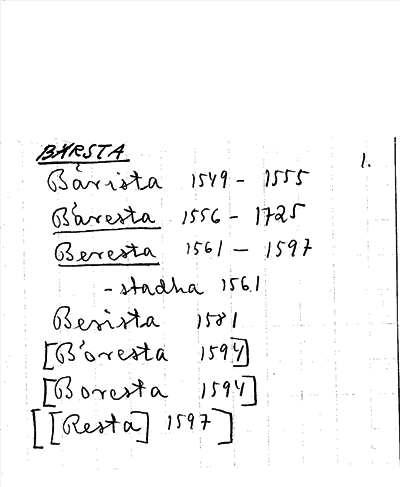 BÄRSTA
1.
Bärista 1549 - 1555
Bäresta 1556 - 1725
Beresta 1561 - 1597
- stadha 1561
Berista 1581
[Böresta 1594]
[Boresta 1594]
[[Resta] 1597]